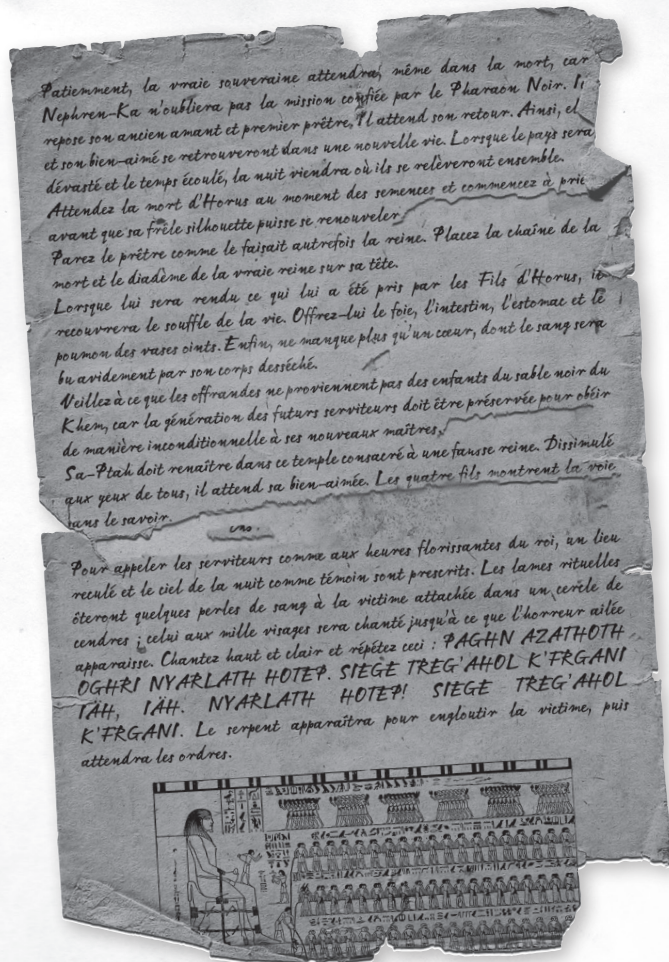 Patiemment, la vraie souveraine attendra, même dans la mort, car
Nephren-Ka n'oubliera pas la mission confiée par le Pharaon Noir. Ii
repose son ancien amant et premier prêtre. Il attend son retour. Ainsi, el
et son bien-aimé se retrouveront dans une nouvelle vie. Lorsque le pays sera
dévasté et le temps écoulé, la nuit viendra où ils se relèveront ensemble.
Attendez la mort d'Horus au moment des semences et commencez à prie
avant que sa frêle silhouette puisse se renouveler
Parez le prêtre comme le faisait autrefois la reine. Placez la chaîne de la
mort et le diadème de la vraie reine sur sa tête.
Lorsque lui sera rendu ce qui lui a été pris par les Fils d'Horus, il
recouvrera le souffle de la vie. Offrez-lui le foie, l'intestin, l'estomac et le
poumon des vases oints. Enfin, ne manque plus qu'un cœur, dont le sang sera
bu avidement par son corps desséché.
Veillez à ce que les offrandes ne proviennent pas des enfants du sable noir du
Khem, car la génération des futurs serviteurs doit être préservée pour obéir
de manière inconditionnelle à ses nouveaux maîtres,
Sa-Ptah doit renaître dans ce temple consacré à une fausse reine. Dissimulé
aux yeux de tous, il attend sa bien-aimée. Les quatre fils montrent la voie
sans le savoir.
Pour appeler les serviteurs comme aux heures florissantes du roi, un lieu
reculé et le ciel de la nuit comme témoin sont prescrits. Les lames rituelles
ôteront quelques perles de sang à la victime attachée dans un cercle de
cendres ; celui aux mille visages sera chanté jusqu'à ce que l'horreur ailée
apparaisse. Chantez haut et clair et répétez ceci : PAGHN AZATHOTH
OGHRI NYARLATH HOTEP. SIEGE TREG'AHOL K'FRGANI
IÄH, IÄH. NYARLATH HOTEP! SIEGE TREG'AHOL
K'FRGANI. Le serpent apparaîtra pour engloutir la victime, puis
attendra les ordres.